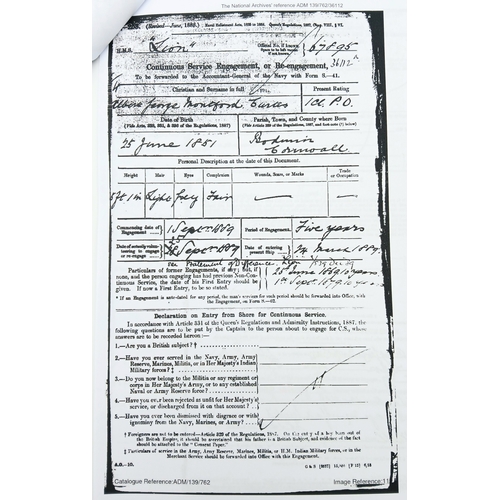 The National Archives' reference ADM 139/762/36112
(Revised—June, 1888.) Naval Enlistment Acts, 1835 to 1885. Queen's Regulations, 1887,
H.M.S. "Lion"
Official No. if known 67895
36112 A
Continuous Service Engagement, or Re-engagement,
To be forwarded to the Accountant-General of the Navy with Form S.—41.
Christian and Surname in full
Present Rating
George Curtis
1 Cl P.O.
Date of Birth
Parish, Town, and County where Born
25 June 1851
Bodmin
Cornwall
Personal Description at the date of this Document.
Height Hair Eyes Complexion Wounds, Scars, or Marks Trade or Occupation
5 ft 1 in Light Grey Fair
Commencing date of Engagement 1 Sept. 1889 Period of Engagement Five years
Date of actually volunteering to engage or re-engage Sept. 1889 Date of entering present Ship 24 March 1889
Particulars of former Engagements, if any; But, if none, and the person engaging has had previous Non-Continuous Service, the date of his First Entry should be given. If now a First Entry, to be so stated.
25 June 1869 10 years
1st Sept. 1879 10 years
* If an Engagement is antedated for any period, the man's services for such period should be forwarded into Office, with the Engagement, on Form S.—42.
Declaration on Entry from Shore for Continuous Service.
In accordance with Article 331 of the Queen's Regulations and Admiralty Instructions, 1887, the
following questions are to be put by the Captain to the person about to engage for C.S., whose
answers are to be recorded herein:—
1.—Are you a British subject? †
2.—Have you ever served in the Navy, Army, Army
Reserve, Marines, Militia, or in Her Majesty's Indian
Military forces? ‡
3.—Do you now belong to the Militia or any regiment or
corps in Her Majesty's Army, or to any established
Naval or Army Reserve force?
4.—Have you ever been rejected as unfit for Her Majesty's
service, or discharged from it on that account?
5.—Have you ever been dismissed with disgrace or with
ignominy from the Navy, Marines, or Army?
† Foreigners are not to be entered—Article 329 of the Regulations, 1887. On the entry of a boy born out of
the British Empire, it should be ascertained that his father is a British Subject, and evidence of the fact
should be attached to the "General Paper."
‡ Particulars of service in the Army, Army Reserve, Marines, Militia, or H.M. Indian Military forces, or in the
Merchant Service should be forwarded into Office with this Engagement.
Catalogue Reference:ADM/139/762
Image Reference:11